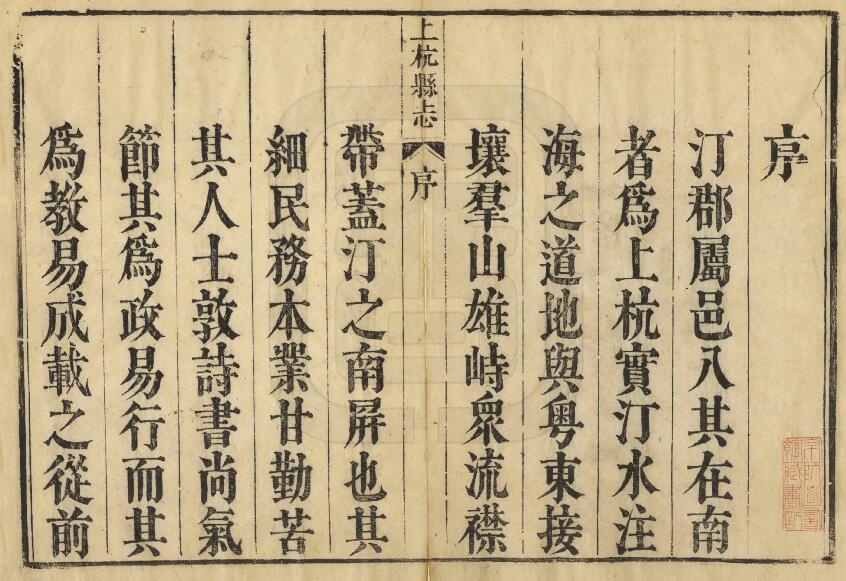 序
汀郡屬邑八其在南
者爲上杭實汀水注
海之道地與粤東接
壤羣山雄峙衆流襟
上杭縣志
序
帶蓋汀之南屏也其
細民務本業甘勤苦
其人士敦詩書尚氣
節其爲政易行而其
爲教易成載之從前